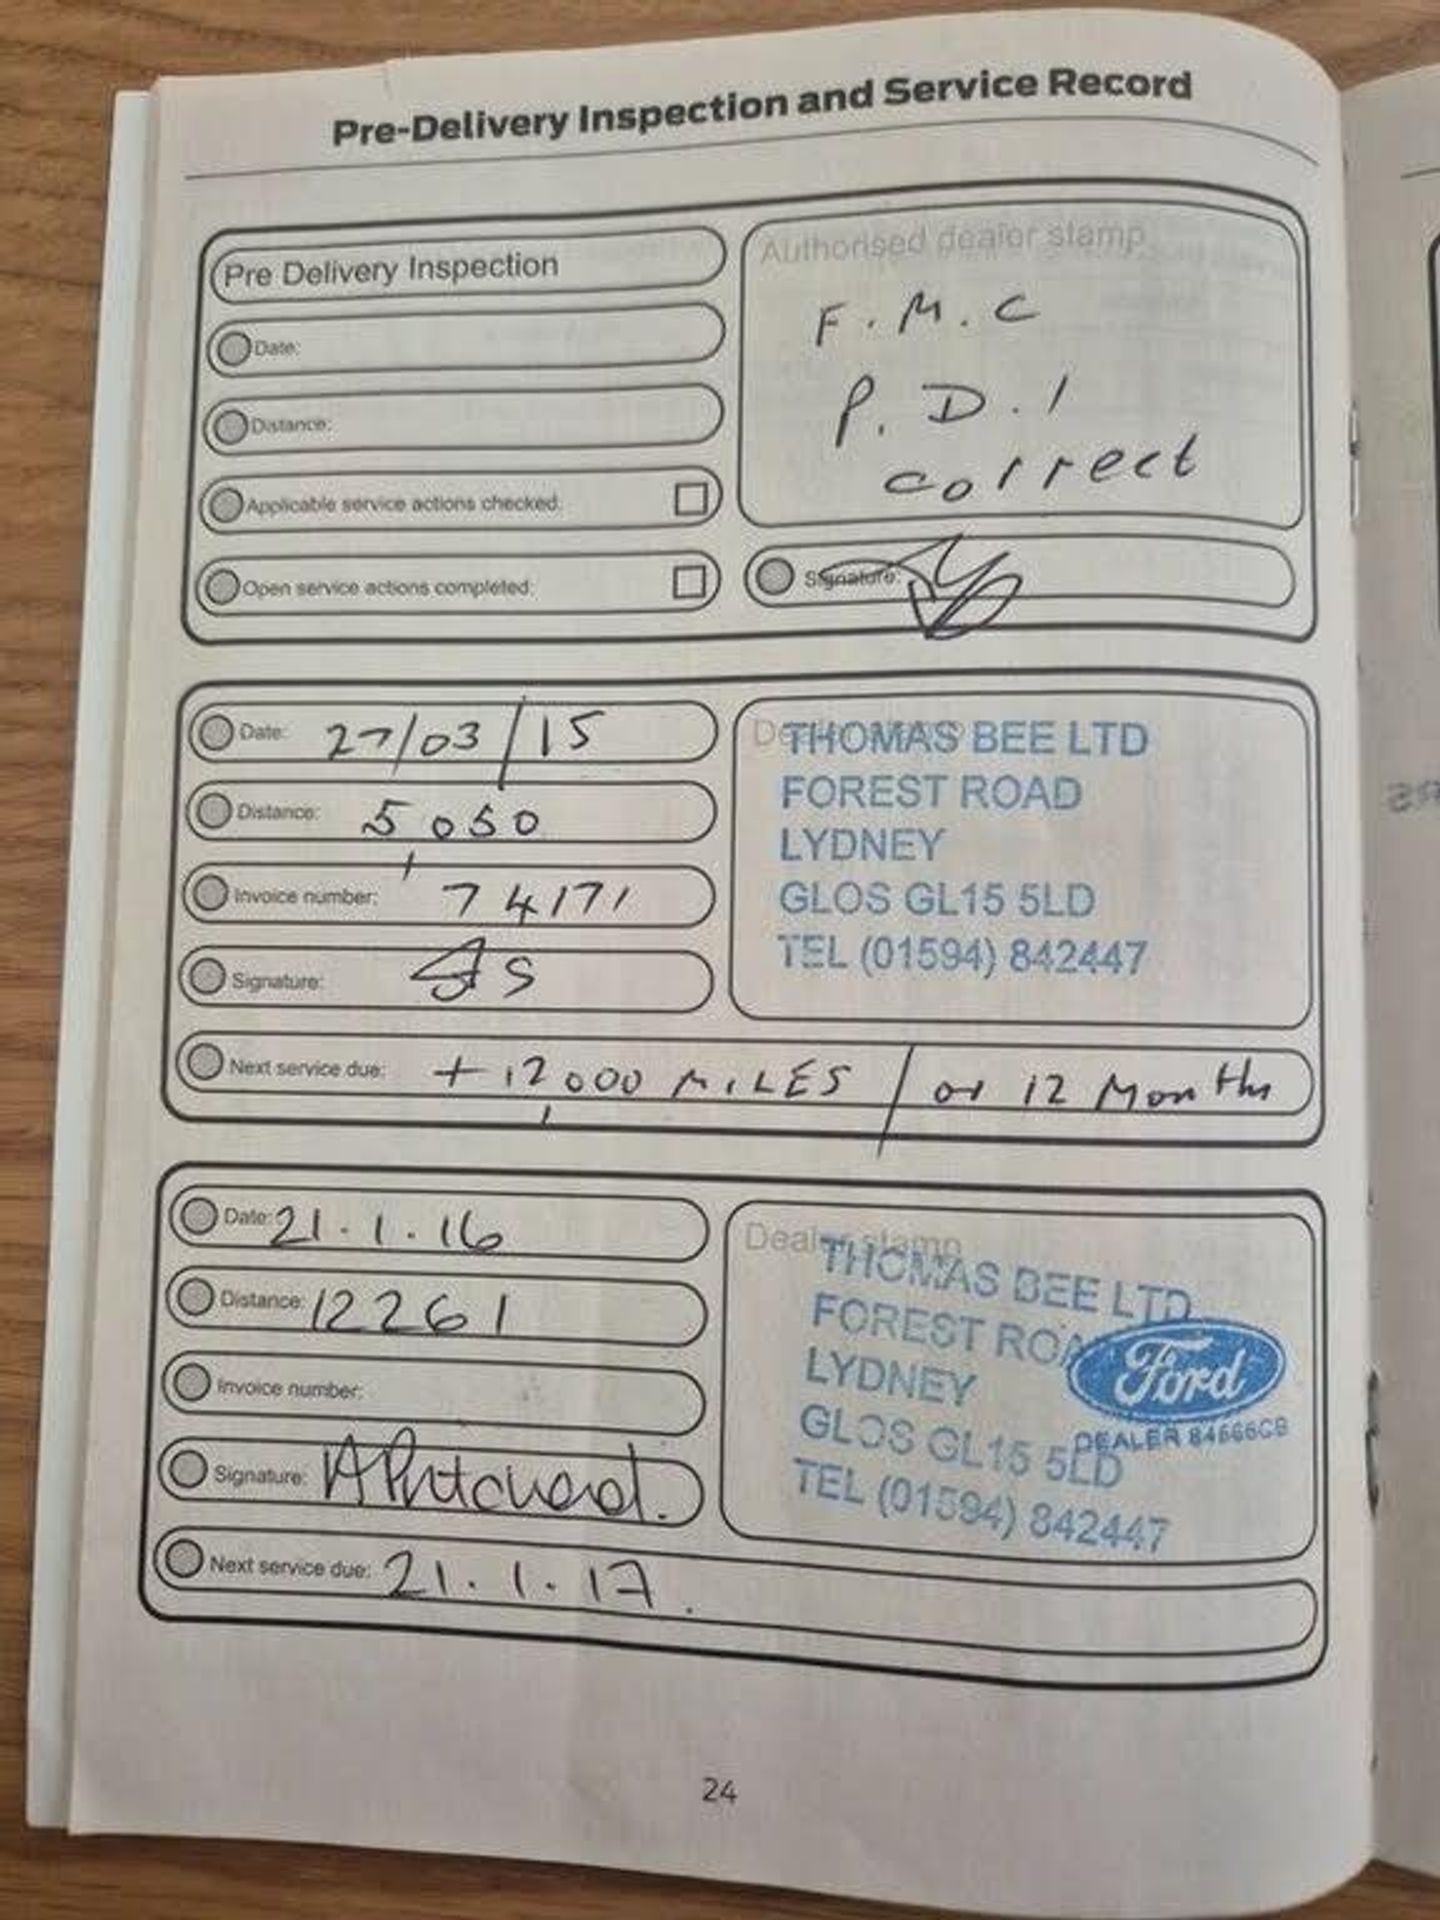 Pre-Delivery Inspection and Service Record
Pre Delivery Inspection
Date:
Distance:
Applicable service actions checked:
Open service actions completed:
Authorised dealer stamp
F.M.C
P.D.I
correct
Signature:
Date: 27/03/15
Distance: 5,050
Invoice number: 74171
Signature:
Next service due: + 12,000 MILES / or 12 Months
Dealer stamp
THOMAS BEE LTD
FOREST ROAD
LYDNEY
GLOS GL15 5LD
TEL (01594) 842447
Date: 21.1.16
Distance: 12261
Invoice number:
Signature: A Pritchard.
Next service due: 21.1.17.
Dealer stamp
THOMAS BEE LTD
FOREST ROA
LYDNEY
GLOS GL15 5LD
TEL (01594) 842447
Ford
DEALER 84666CB
24